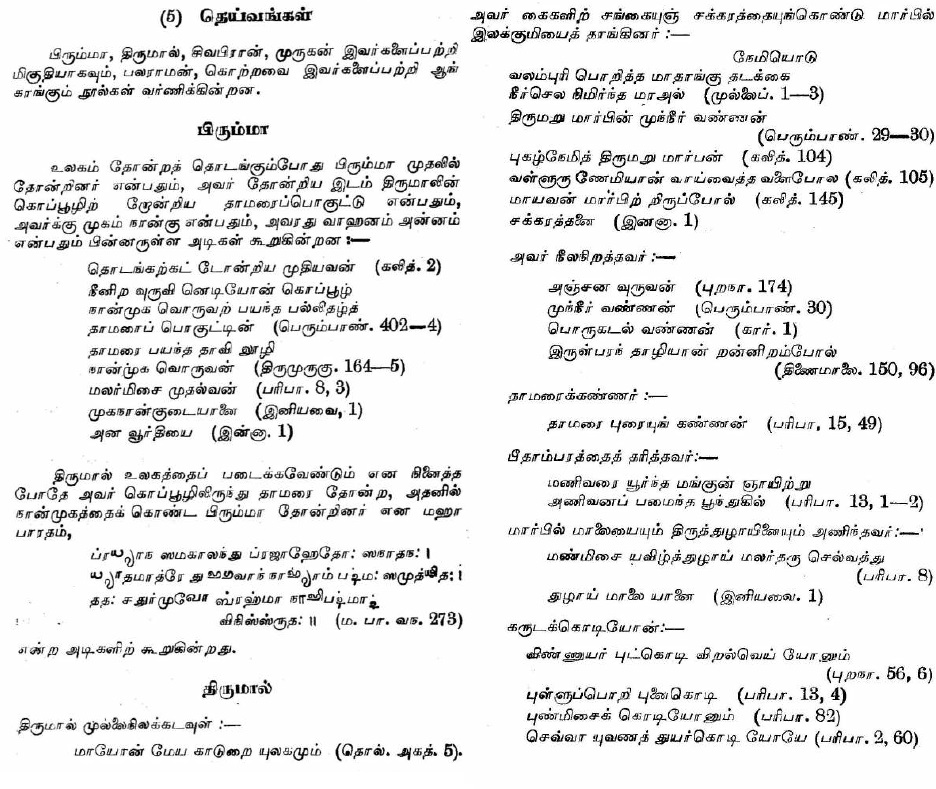 (5) தெய்வங்கள்
பிரும்மா, திருமால், சிவபிரான், முருகன் இவர்களைப்பற்றி
மிகுதியாகவும், பலராமன், கொற்றவை இவர்களைப்பற்றி ஆங்
காங்கும் நூல்கள் வர்ணிக்கின்றன.
பிரும்மா
உலகம் தோன்றத் தொடங்கும்போது பிரும்மா முதலில்
தோன்றினர் என்பதும், அவர் தோன்றிய இடம் திருமாலின்
கொப்பூழிற் றோன்றிய தாமரைப்பொகுட்டு என்பதும்,
அவர்க்கு முகம் நான்கு என்பதும், அவரது வாஹனம் அன்னம்
என்பதும் பின்னருள்ள அடிகள் கூறுகின்றன :—
தொடங்கற்கட் டோன்றிய முதியவன் (கலித். 2)
நீனிற வுருவி னெடியோன் கொப்பூழ்
நான்முக வொருவற் பயந்த பல்லிதழ்த்
தாமரைப் பொகுட்டின் (பெரும்பாண். 402—4)
தாமரை பயந்த தாவி லூழி
நான்முக வொருவன் (திருமுருகு. 164—5)
மலர்மிசை முதல்வன் (பரிபா. 8, 3)
முகநான்குடையானை (இனியவை, 1)
அன வூர்தியை (இன்னா. 1)
திருமால் உலகத்தைப் படைக்கவேண்டும் என நினைத்த
போதே அவர் கொப்பூழிலிருந்து தாமரை தோன்ற, அதனில்
நான்முகத்தைக் கொண்ட பிரும்மா தோன்றினர் என மஹா
பாரதம்,
ஸமகாலந்து ப்ரஜாஹேதோ: ஸநாதந: |
தத: சதுர்முவோ
(ம. பா. வந. 273)
என்ற அடிகளிற் கூறுகின்றது.
திருமால்
திருமால் முல்லைநிலக்கடவுள் :—
மாயோன் மேய காடுறை யுலகமும் (தொல். அகத். 5).
அவர் கைகளிற் சங்கையுஞ் சக்கரத்தையுங்கொண்டு மார்பில்
இலக்குமியைத் தாங்கினர் :—
நேமியொடு
வலம்புரி பொறித்த மாதாங்கு தடக்கை
நீர்செல நிமிர்ந்த மாஅல் (முல்லைப். 1—3)
திருமறு மார்பின் முந்நீர் வண்ணன்
(பெரும்பாண். 29—30)
புகழ்நேமித் திருமறு மார்பன் (கலித். 104)
வள்ளுரு ணேமியான் வாய்வைத்த வளைபோல (கலித். 105)
மாயவன் மார்பிற் றிருப்போல் (கலித். 145)
சக்கரத்தனை (இனனா. 1)
அவர் நீலநிறத்தவர் :—
அஞ்சன வுருவன் (புறநா. 174)
முந்நீர் வண்ணன் (பெரும்பாண். 30)
பொருகடல் வண்ணன் (கார். 1)
இருள்பரந் தாழியான் றன்னிறம்போல்
(திணைமாலை. 150, 96)
தாமரைக்கண்ணர் :—
தாமரை புரையுங் கண்ணன் (பரிபா, 15, 49)
பீதாம்பரத்தைத் தரித்தவர்:—
மணிவரை யூர்ந்த மங்குன் ஞாயிற்று
அணிவனப் பமைந்த பூந்துகில் (பரிபா. 13, 1—2)
மார்பில் மாலையையும் திருத்துழாயினையும் அணிந்தவர்:—
மண்மிசை யவிழ்த்துழாய் மலர்தரு செல்வத்து
(பரிபா. 8)
துழாய் மாலை யானை (இனியவை. 1)
கருடக்கொடியோன்:—
விண்ணுயர் புட்கொடி விறல்வெய் யோனும்
(புறநா. 56, 6)
புள்ளுப்பொறி புனைகொடி (பரிபா. 13, 4)
புண்மிசைக் கொடியோனும் (பரிபா. 82)
செவ்வா யுவணத் துயர்கொடி யோயே (பரிபா. 2, 60)